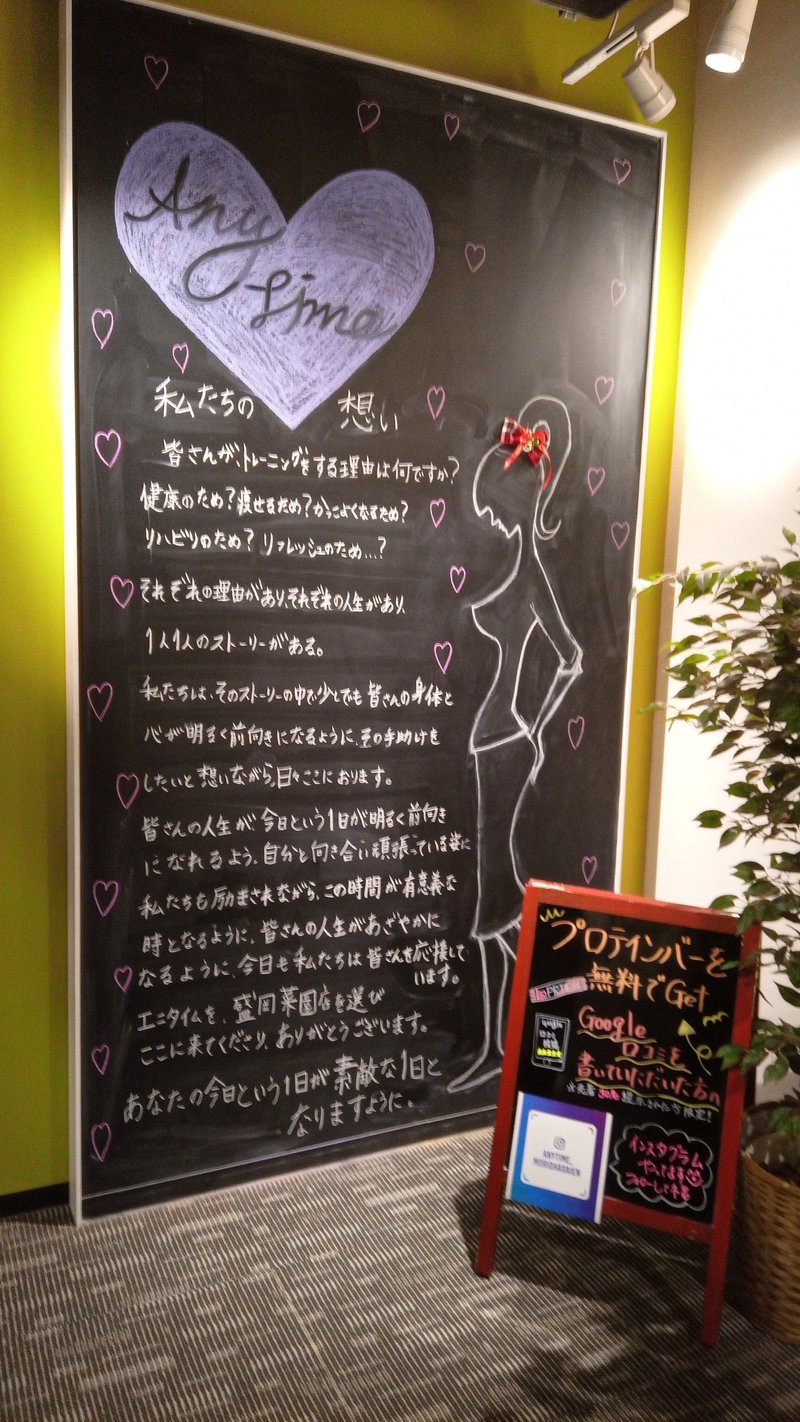 Any
time
私たちの 想い
皆さんが、トレーニングをする理由は何ですか?
健康のため?痩せるため?かっこよくなるため?
リハビリのため? リフレッシュのため…?
それぞれの理由があり、それぞれの人生があり、
1人1人のストーリーがある。
私たちは、そのストーリーの中で少しでも皆さんの身体と
心が明るく前向きになるように、その手助けを
したいと想いながら、日々ここにおります。
皆さんの人生が、今日という1日が明るく前向き
になれるよう、自分と向き合い頑張っている姿に
私たちも励まされながら、この時間が有意義な
時となるように、皆さんの人生があざやかに
なるように、今日も私たちは皆さんを応援して
います。
エニタイムを、盛岡菜園店を選び
ここに来てくださり、ありがとうございます。
あなたの今日という1日が素敵な1日と
なりますように。
プロテインバーを
無料でGet
Google
口コミを
書いていただいた方の
ANYTIME_
MORIOKASAIEN
インスタグラム
やってます